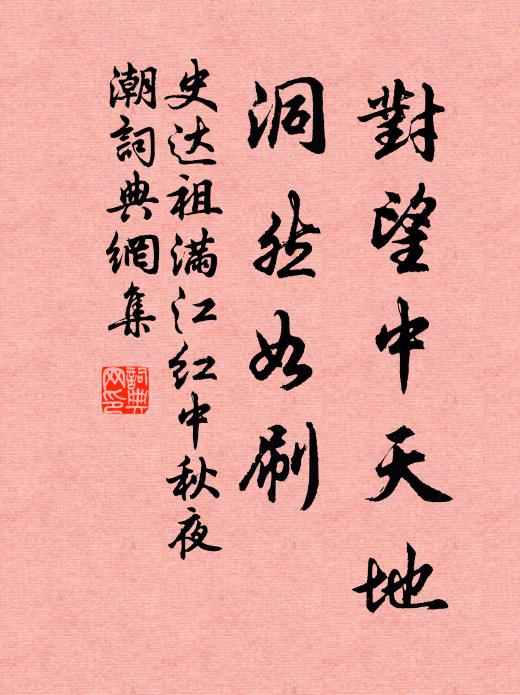 對望中天地
洞然如刷
史达祖满江红中秋夜
潮詞典網集
詞典网印